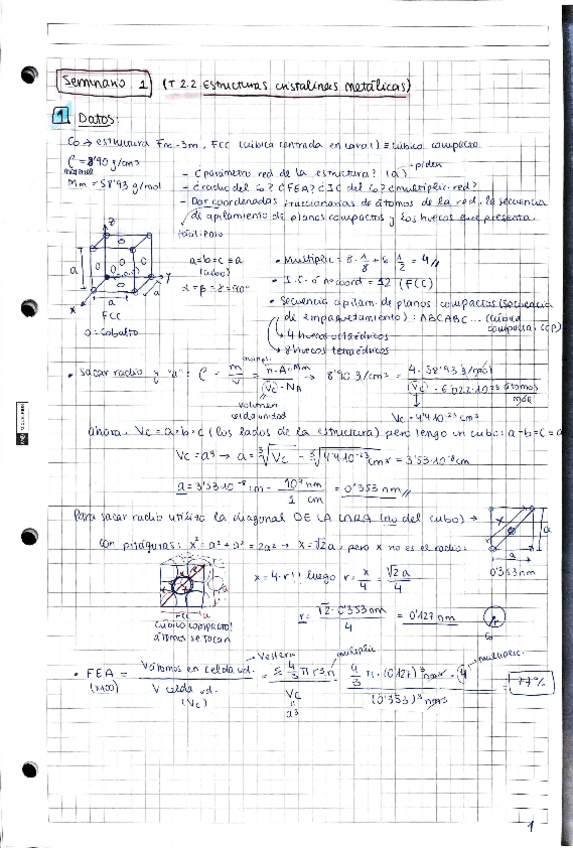 Seminario 1 (T 2.2 Estructuras cristalinas metálicas)
1 Datos:
Co → estructura Fm-3m, FCC (cúbica centrada en cara) ≡ cúbico compacto
ρ = 8'90 g/cm³
Mm = 58'93 g/mol
piden
- ¿parámetro red de la estructura? (a)
- ¿radio del Co? ¿FEA? ¿IC del Co? ¿multiplic. red?
- Dar coordenadas fraccionarias de átomos de la red, la secuencia
de apilamiento de planos compactos y los huecos que presenta.
z
a
y
x
a
a
FCC
o = cobalto
a=b=c=a
(cubo)
α=β=γ=90°
• Multiplic = 8·1/8 + 6·1/2 = 4 //
• I.C. o nº coord = 12 (FCC)
• Secuencia apilam. de planos compactos (secuencia
de empaquetamiento): ABCABC... (cúbica
compacta, CCP)
4 huecos octaédricos
8 huecos tetraédricos
• Sacar radio y "a": ρ = m/V = n·A=Mm / (Vc)·NA → 8'90 g/cm³ = 4·58'93 g/mol / (Vc)·6'022·10²³ átomos/mol
multipl.
volumen
celda unidad
Vc = 4'4·10⁻²³ cm³
ahora, Vc = a·b·c (los lados de la estructura) pero tengo un cubo: a=b=c=a
Vc = a³ → a = ³√Vc = ³√4'4·10⁻²³ cm³ = 3'53·10⁻⁸ cm
a = 3'53·10⁻⁸ cm · 10⁷ nm / 1 cm = 0'353 nm //
Para sacar radio utilizo la diagonal DE LA CARA (no del cubo) →
x
a
a
0'353 nm
con pitágoras: x² = a² + a² = 2a² → x = √2a, pero x no es el radio:
FCC
cúbico compacto!
átomos se tocan
x = 4·r!! luego r = x/4 = √2 a/4
r = √2·0'353 nm / 4 = 0'127 nm
r
Co
• FEA = Vátomos en celda ud. / V celda ud. = 4/3 π r³·n / Vc = 4/3 π·(0'127)³ nm³·4 / (0'353)³ nm³ = 77%
(x100)
(Vc)
Vesfera
multiplic
a³
multiplic.
1